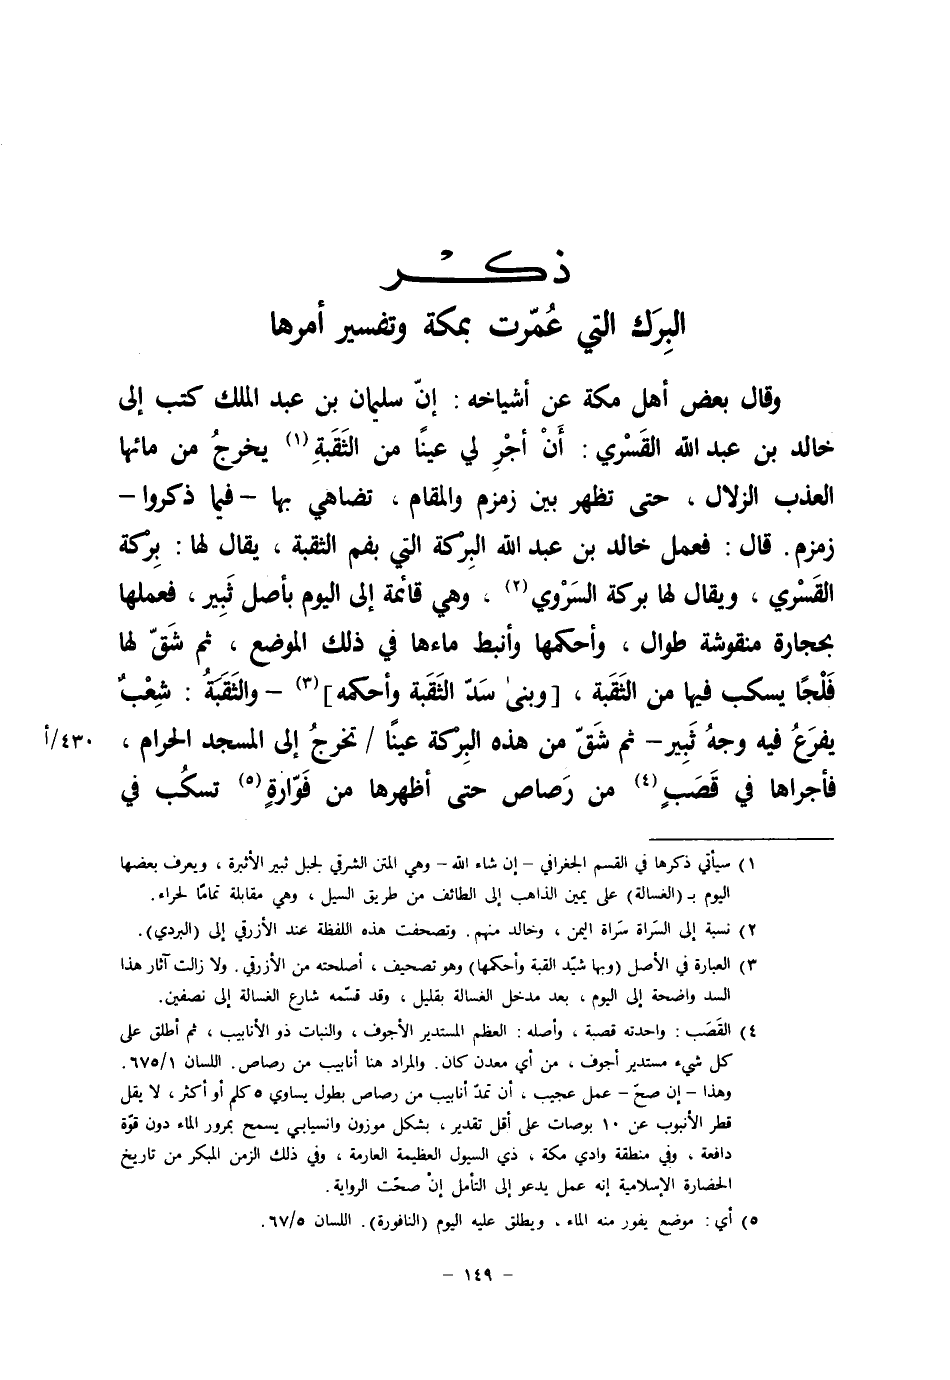 ذكْر
البِرَك التي عُمّرت بمكة وتفسير أمرها
وقال بعض أهل مكة عن أشياخه : إنّ سليمان بن عبد الملك كتب إلى
خالد بن عبد الله القَسْري : أَنْ أجْرِ لي عينًا من الثَقَبةِ (١) يخرجُ من مائها
العذب الزلال ، حتى تظهر بين زمزم والمقام ، تضاهي بها -فيما ذكروا-
زمزم. قال : فعمل خالد بن عبد الله البِرْكة التي بفم الثقبة ، يقال لها : بِرْكة
القَسْري ، ويقال لها بركة السَرْوي (٢) ، وهي قائمة إلى اليوم بأصل ثَبِير ، فعملها
بحجارة منقوشة طوال ، وأحكمها وأنبط ماءها في ذلك الموضع ، ثم شَقّ لها
فَلْجًا يسكب فيها من الثَقَبة ، [وبنىٰ سَدّ الثَقَبة وأحكمه] (٣) - والثَقَبَةُ : شِعْبٌ
يفرَعُ فيه وجهُ ثَبِير- ثم شَقّ من هذه البِرْكة عينًا / تخرجُ إلى المسجد الحرام ، ٤٣٠/أ
فأجراها في قَصَبٍ (٤) من رَصاص حتى أظهرها من فَوّارةٍ (٥) تسكُب في
١) سيأتي ذكرها في القسم الجغرافي - إن شاء الله - وهي المتن الشرقي لجبل ثبير الأثبرة ، ويعرف بعضها
اليوم بـ (الغسالة) على يمين الذاهب إلى الطائف من طريق السيل ، وهي مقابلة تمامًا لحراء.
٢) نسبة إلى السَراة سَراة اليمن ، وخالد منهم. وتصحفت هذه اللفظة عند الأزرقي إلى (البردي).
٣) العبارة في الأصل (وبها شيّد القبة وأحكمها) وهو تصحيف ، أصلحته من الأزرقي. ولا زالت آثار هذا
السد واضحة إلى اليوم ، بعد مدخل الغسالة بقليل ، وقد قسّمه شارع الغسالة إلى نصفين.
٤) القَصَب : واحدته قصبة ، وأصله : العظم المستدير الأجوف ، والنبات ذو الأنابيب ، ثم أطلق على
كل شيء مستدير أجوف ، من أي معدن كان. والمراد هنا أنابيب من رصاص. اللسان ٦٧٥/١.
وهذا - إن صحّ - عمل عجيب ، أن تمدّ أنابيب من رصاص بطول يساوي ٥ كلم أو أكثر ، لا يقل
قطر الأنبوب عن ١٠ بوصات على أقل تقدير ، بشكل موزون وانسيابي يسمح بمرور الماء دون قوّة
دافعة ، وفي منطقة وادي مكة ، ذي السيول العظيمة العارمة ، وفي ذلك الزمن المبكر من تاريخ
الحضارة الإسلامية إنه عمل يدعو إلى التأمل إنْ صحّت الرواية.
٥) أي : موضع يفور منه الماء ، ويطلق عليه اليوم (النافورة). اللسان ٦٧/٥.
- ١٤٩ -